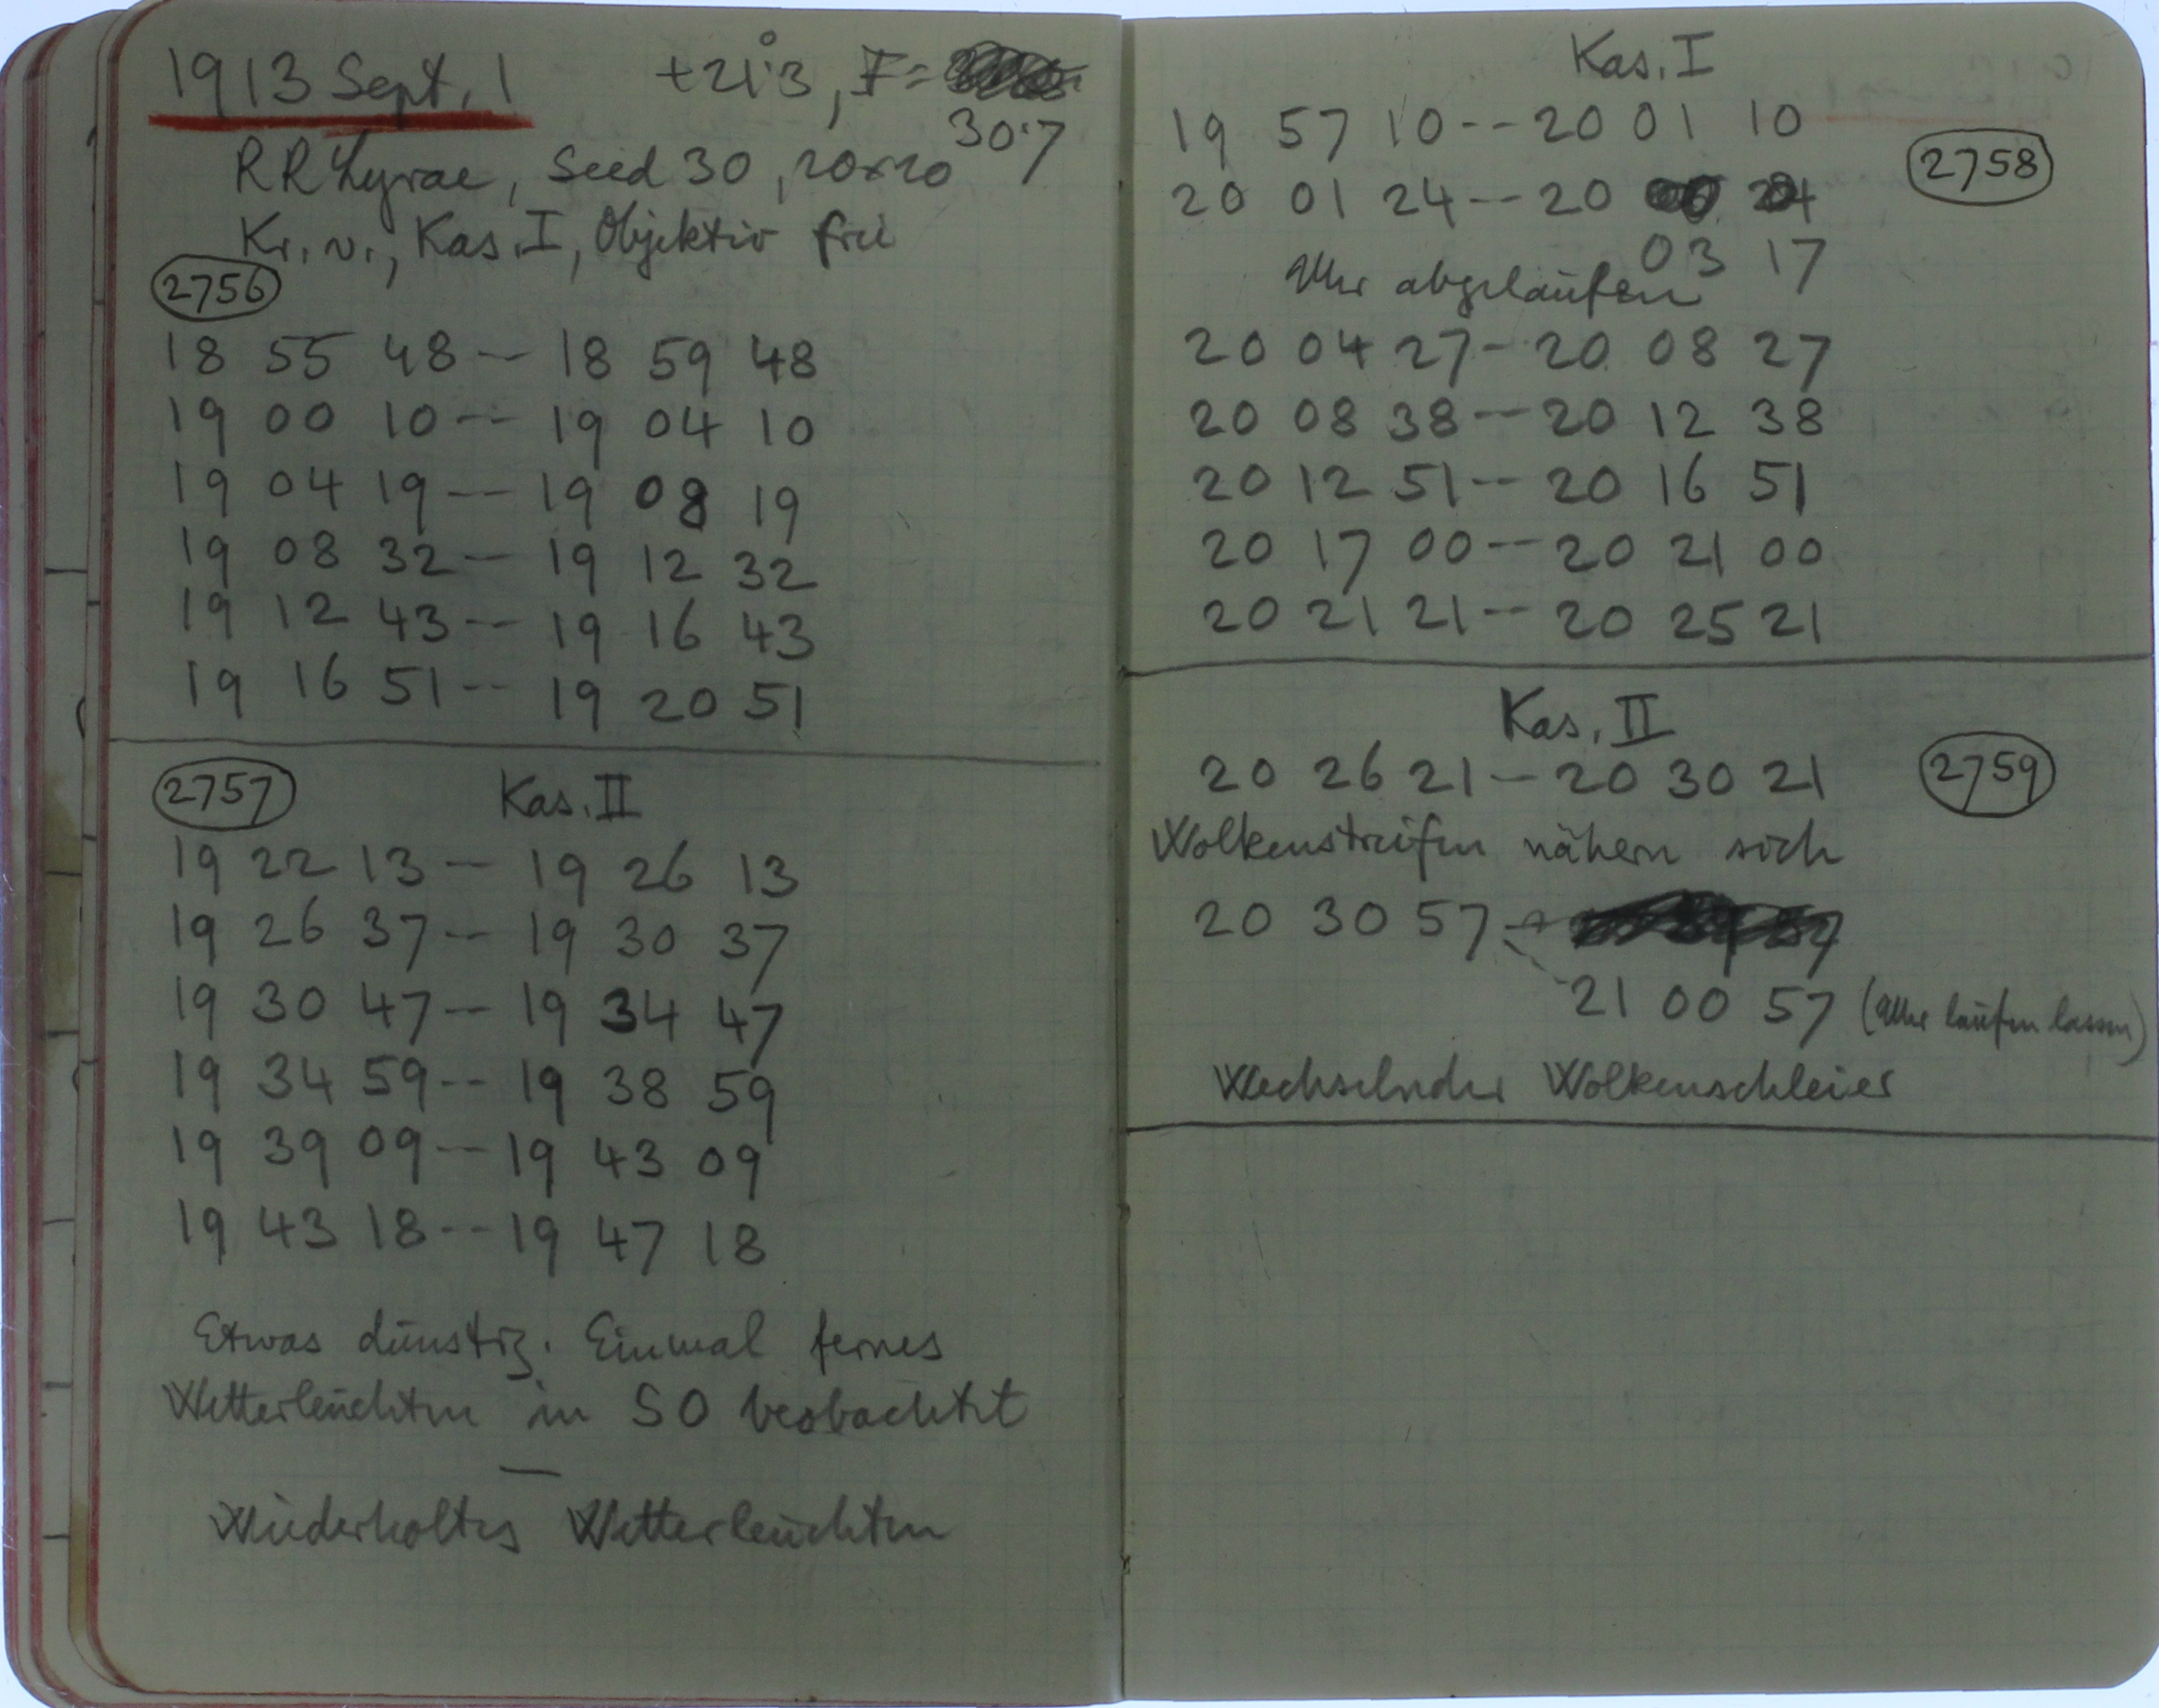 1913 Sept. 1 +21°.3, F=
30.7
RR Lyrae, Seed 30, 20x20
Kr. v., Kas. I, Objektiv frei
2756
18 55 48 -- 18 59 48
19 00 10 -- 19 04 10
19 04 19 -- 19 08 19
19 08 32 -- 19 12 32
19 12 43 -- 19 16 43
19 16 51 -- 19 20 51
2757 Kas. II
19 22 13 -- 19 26 13
19 26 37 -- 19 30 37
19 30 47 -- 19 34 47
19 34 59 -- 19 38 59
19 39 09 -- 19 43 09
19 43 18 -- 19 47 18
Etwas dünstig. Einmal fernes
Wetterleuchten in SO beobachtet
—
Wiederholtes Wetterleuchten
Kas. I
19 57 10 -- 20 01 10
2758
20 01 24 -- 20
03 17
Uhr abgelaufen
20 04 27 - 20 08 27
20 08 38 -- 20 12 38
20 12 51 -- 20 16 51
20 17 00 -- 20 21 00
20 21 21 -- 20 25 21
Kas. II
20 26 21 - 20 30 21 2759
Wolkenstreifen nähern sich
20 30 57 --
21 00 57 (Uhr laufen lassen)
Wechselnder Wolkenschleier